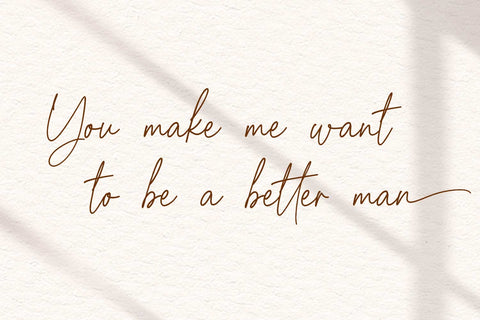 You make me want
to be a better man